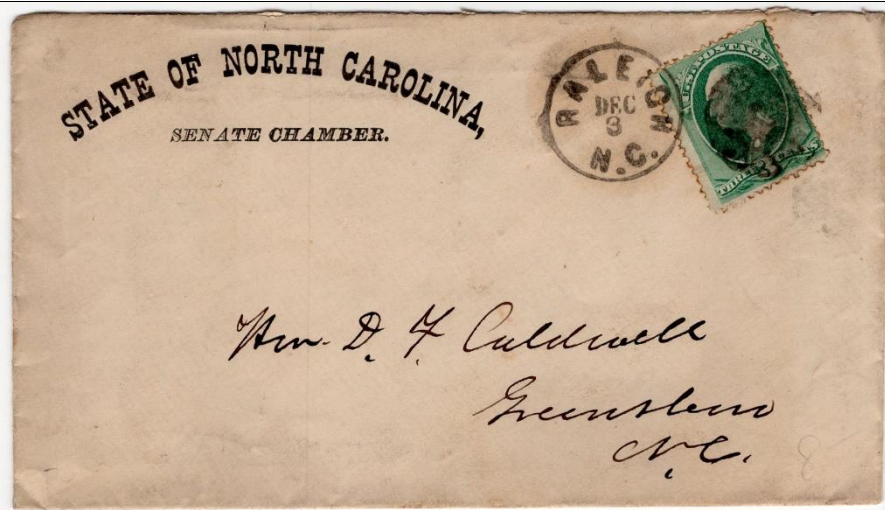 STATE OF NORTH CAROLINA,
SENATE CHAMBER.
RALEIGH
DEC
3
N.C.
U.S. POSTAGE
THREE 3 CENTS
Hon. D. F. Caldwell
Greensboro
N.C.